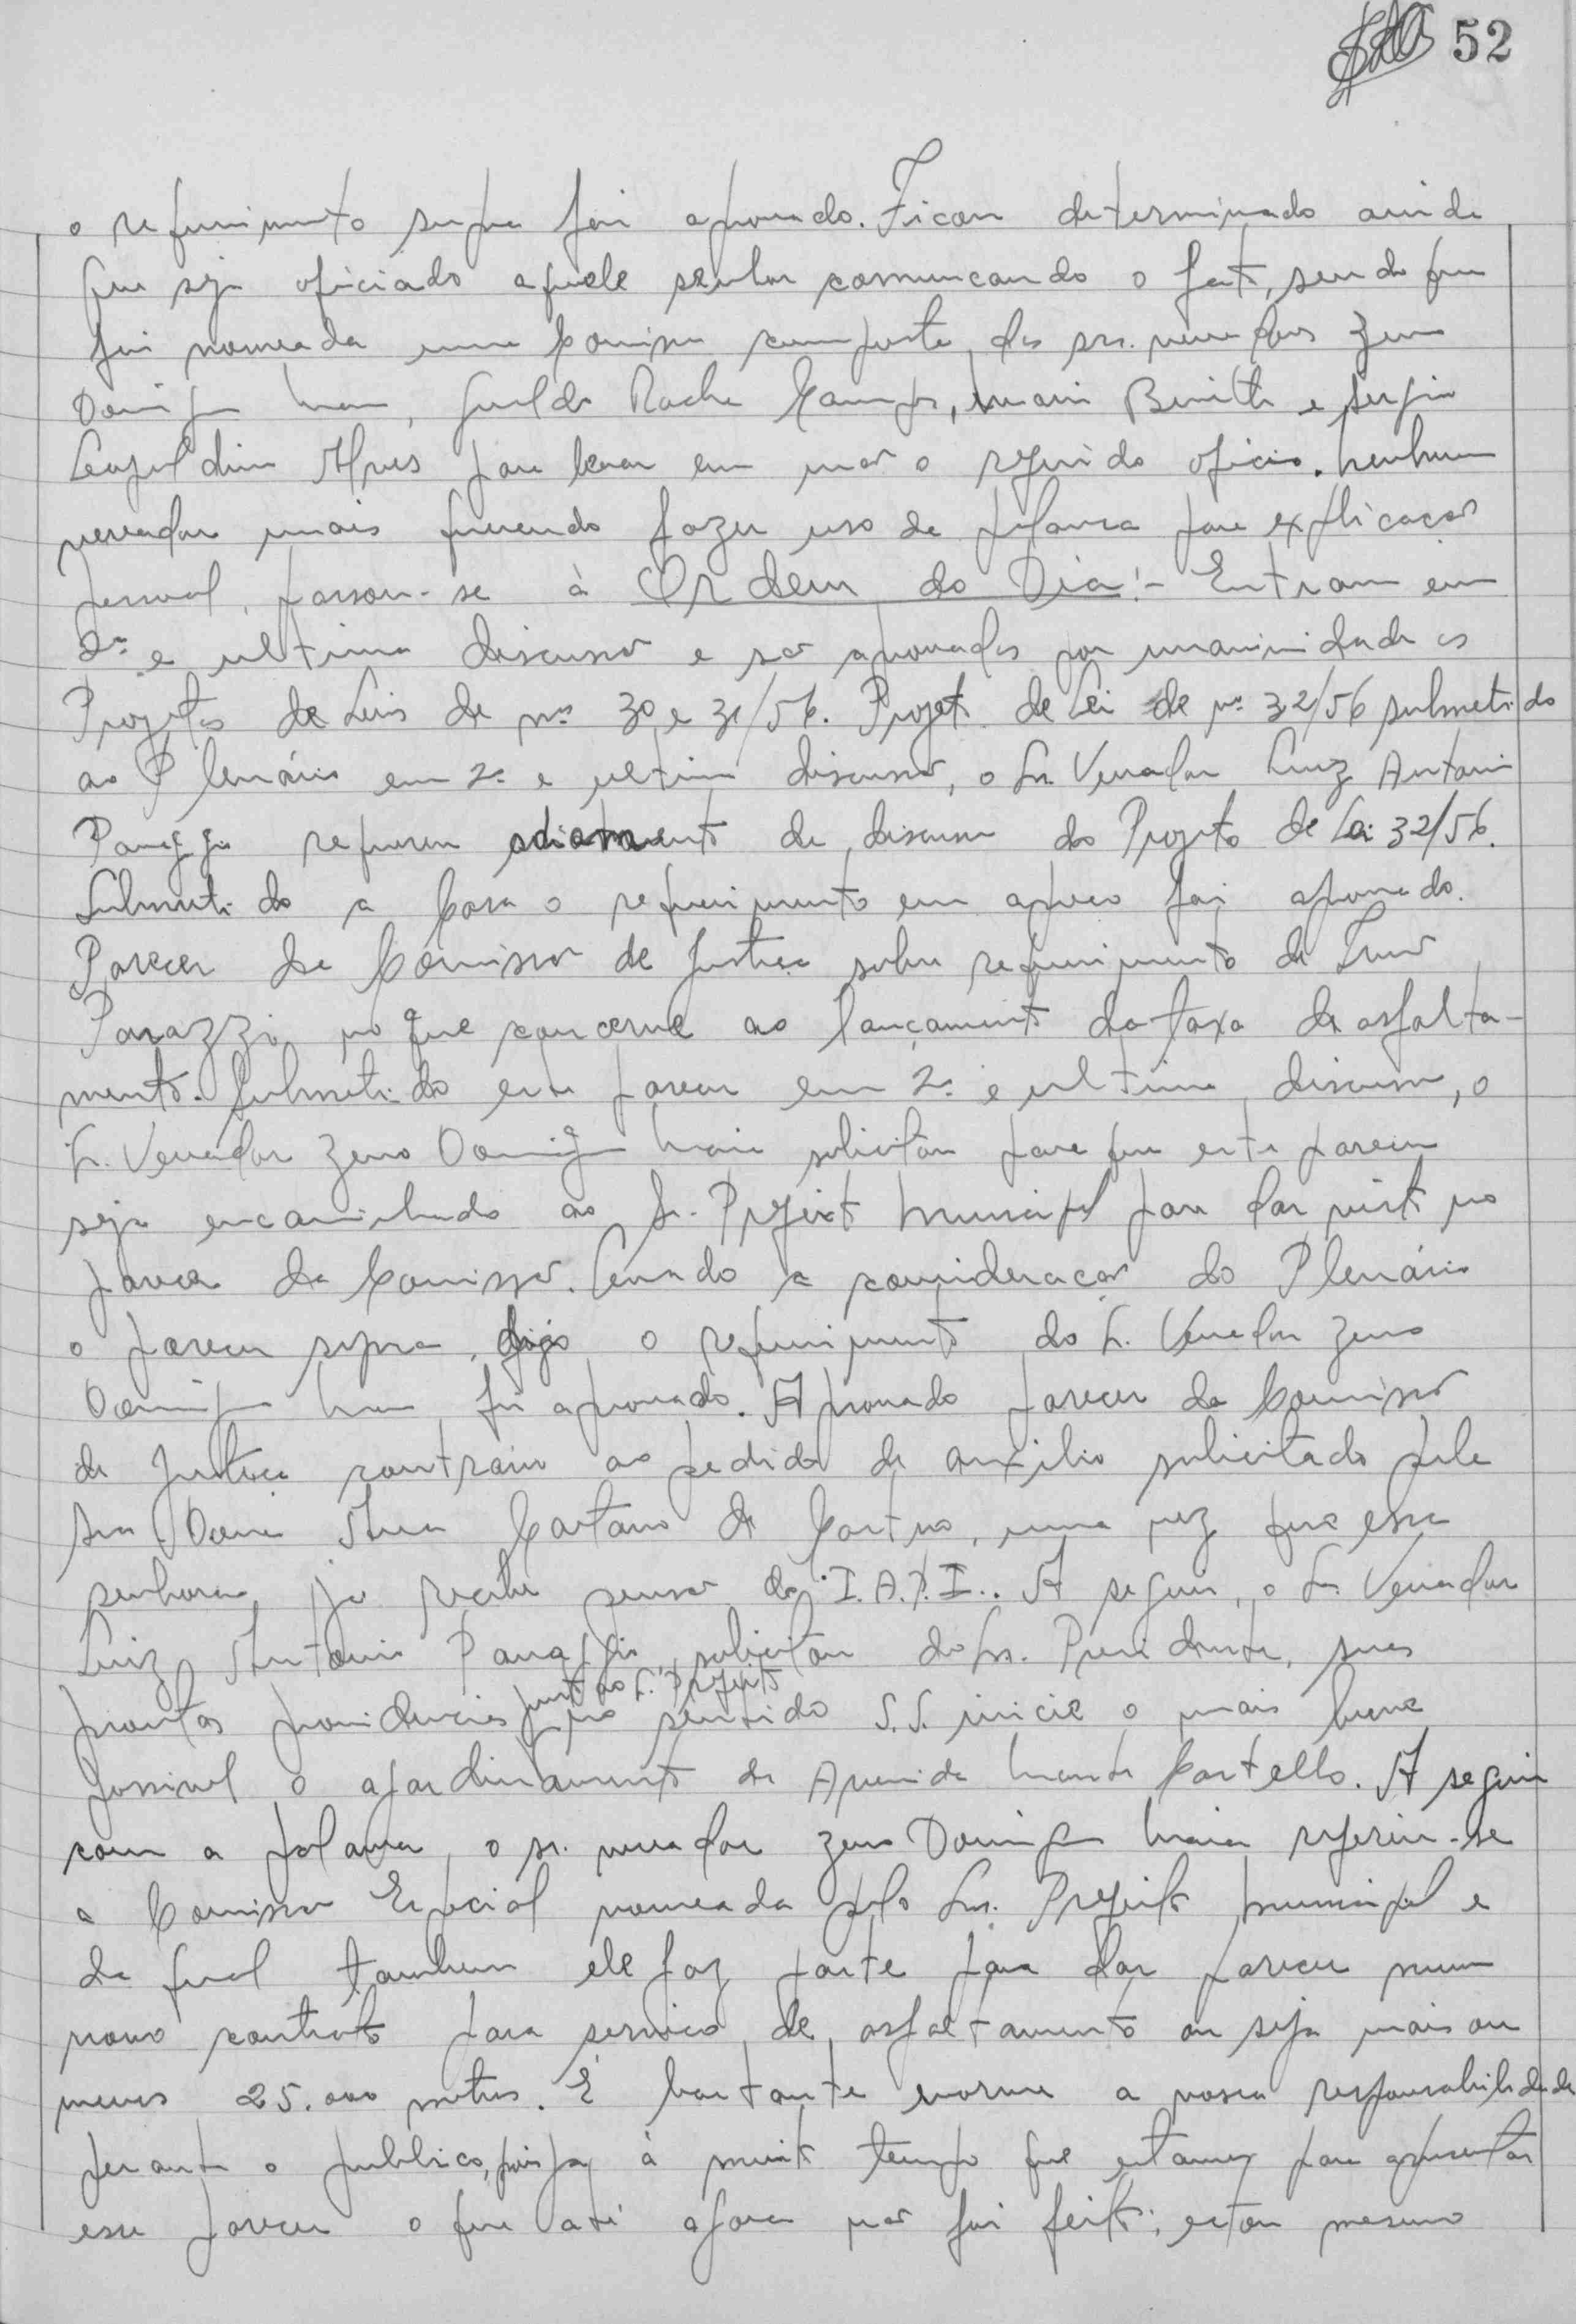 52
o requerimento supra foi aprovado. Ficou determinado ainda
que seja oficiado aquele senhor comunicando o fato, sendo que
foi nomeada uma Comissão composta dos srs. vereadores Zeno
Domingos Maia, Geraldo Rocha Campos, Benith e Sergio
Leopoldino Alves para levar em mãos o referido oficio. Nenhum
vereador mais querendo fazer uso da palavra para explicação
pessoal, passou-se à Ordem do Dia:- Entram em
2ª e ultima discussão e são aprovados por unanimidade os
Projetos de Leis de nos 30 e 31/56. Projeto de Lei de nº 32/56 submetido
ao Plenário em 2ª e ultima discussão, o Sr. Vereador Luiz Antonio
requereu adiamento da discussão do Projeto de Lei 32/56.
Submetido a Casa o requerimento em apreço foi aprovado.
Parecer da Comissão de Justiça sobre requerimento de
Parazzi no que concerne ao lançamento da taxa de asfalta-
mento. Submetido este parecer em 2ª e ultima discussão, o
Sr. Vereador Zeno Domingos Maia solicitou para que este parecer
seja encaminhado ao Sr. Prefeito Municipal para dar visto no
parecer da Comissão. Levado a consideração do Plenário
o parecer supra, digo o requerimento do Sr. Vereador Zeno
Domingos Maia foi aprovado. Aprovado parecer da Comissão
de Justiça contrario ao pedido de auxilio solicitado pela
sra. Caetano de Castro, uma vez que essa
senhora já recebe pensão do I.A.P.I.. A seguir, o Sr. Vereador
Luiz Antonio solicitou do Sr. Presidente, suas
prontas providencias junto ao Sr. Prefeito no sentido S.S. inicie o mais breve
possivel o ajardinamento da Avenida Monte Castello. A seguir
com a palavra, o sr. vereador Zeno Domingos Maia referiu-se
a Comissão Especial nomeada pelo Snr. Prefeito Municipal e
da qual tambem ele faz parte para dar parecer num
novo contrato para serviço de asfaltamento ou seja mais ou
menos 25.000 metros. É bastante enorme a nossa responsabilidade
perante o publico, pois já á muito tempo que estamos para apresentar
esse parecer o que até agora não foi feito; estou mesmo